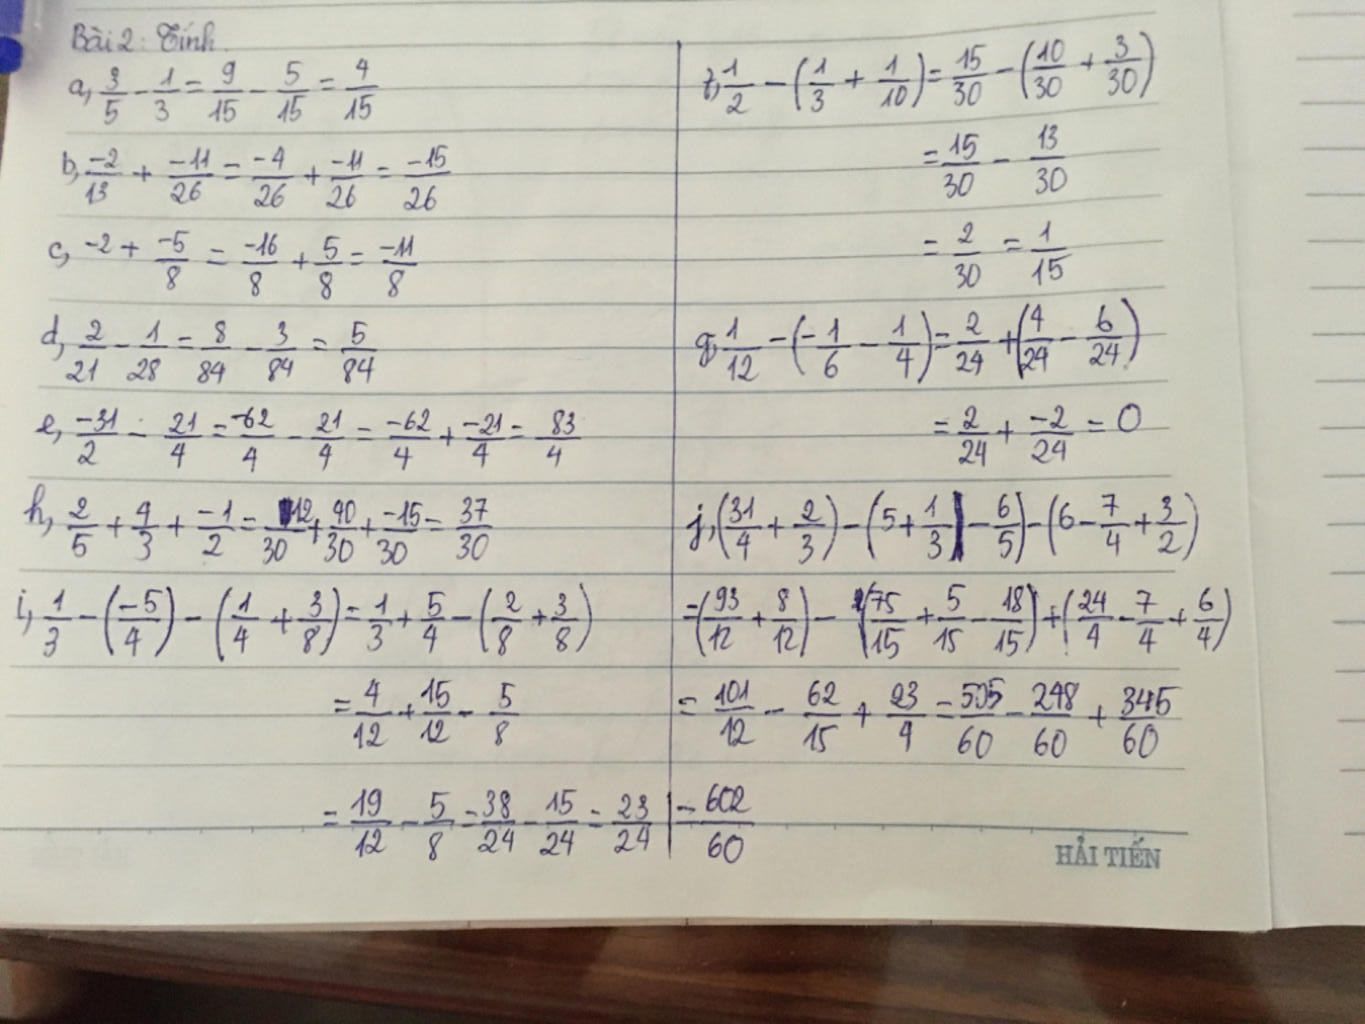 Bài 2: Tính
a, 3/5 - 1/3 = 9/15 - 5/15 = 4/15
b, -2/13 + -11/26 = -4/26 + -11/26 = -15/26
c, -2 + -5/8 = -16/8 + 5/8 = -11/8
d, 2/21 - 1/28 = 8/84 - 3/84 = 5/84
e, -31/2 - 21/4 = -62/4 - 21/4 = -62/4 + -21/4 = 83/4
h, 2/5 + 4/3 + -1/2 = 12/30 + 40/30 + -15/30 = 37/30
i, 1/3 - (-5/4) - (1/4 + 3/8) = 1/3 + 5/4 - (2/8 + 3/8)
= 4/12 + 15/12 - 5/8
= 19/12 - 5/8 = 38/24 - 15/24 = 23/24
f, 1/2 - (1/3 + 1/10) = 15/30 - (10/30 + 3/30)
= 15/30 - 13/30
= 2/30 = 1/15
g, 1/12 - (-1/6 - 1/4) = 2/24 + (4/24 - 6/24)
= 2/24 + -2/24 = 0
j, (31/4 + 2/3) - (5 + 1/3 - 6/5) - (6 - 7/4 + 3/2)
= (93/12 + 8/12) - (75/15 + 5/15 - 18/15) + (24/4 - 7/4 + 6/4)
= 101/12 - 62/15 + 23/4 = 505/60 - 248/60 + 345/60
= 602/60
HẢI TIẾN